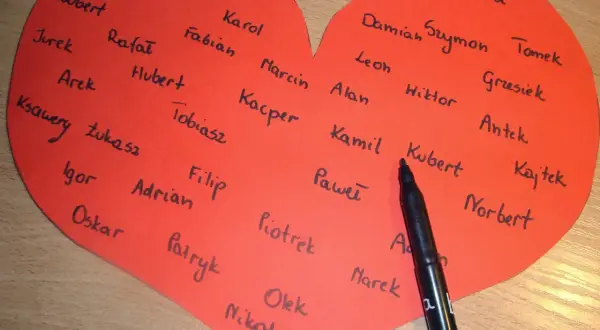 Karol
Damian
Szymon
Tomek
Jurek
Rafał
Fabian
Leon
Grzesiek
Arek
Hubert
Marcin
Alan
Wiktor
Ksawery
Łukasz
Tobiasz
Kacper
Kamil
Kubert
Antek
Kajtek
Igor
Adrian
Filip
Paweł
Norbert
Oskar
Patryk
Piotrek
Marek
Olek